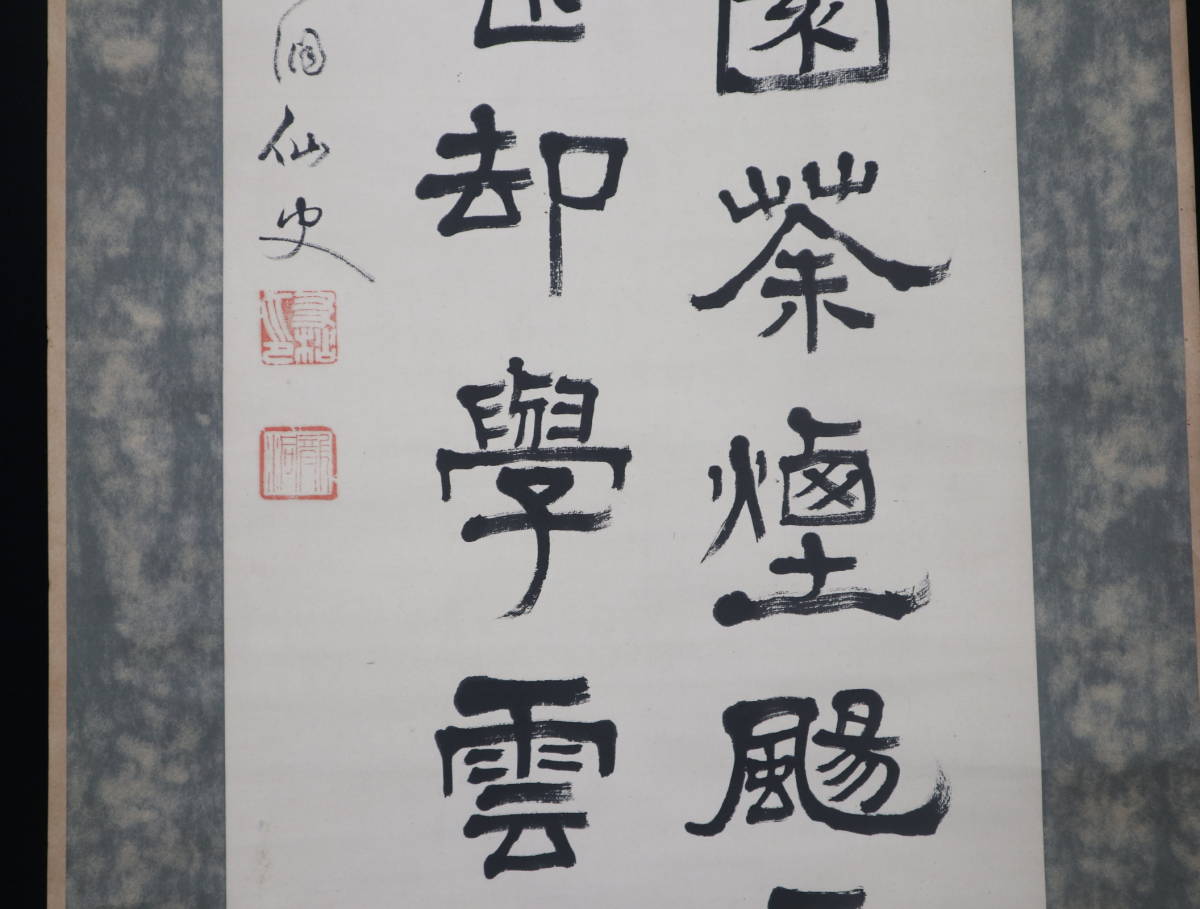 園茶煙颺
却學雲
洞仙史